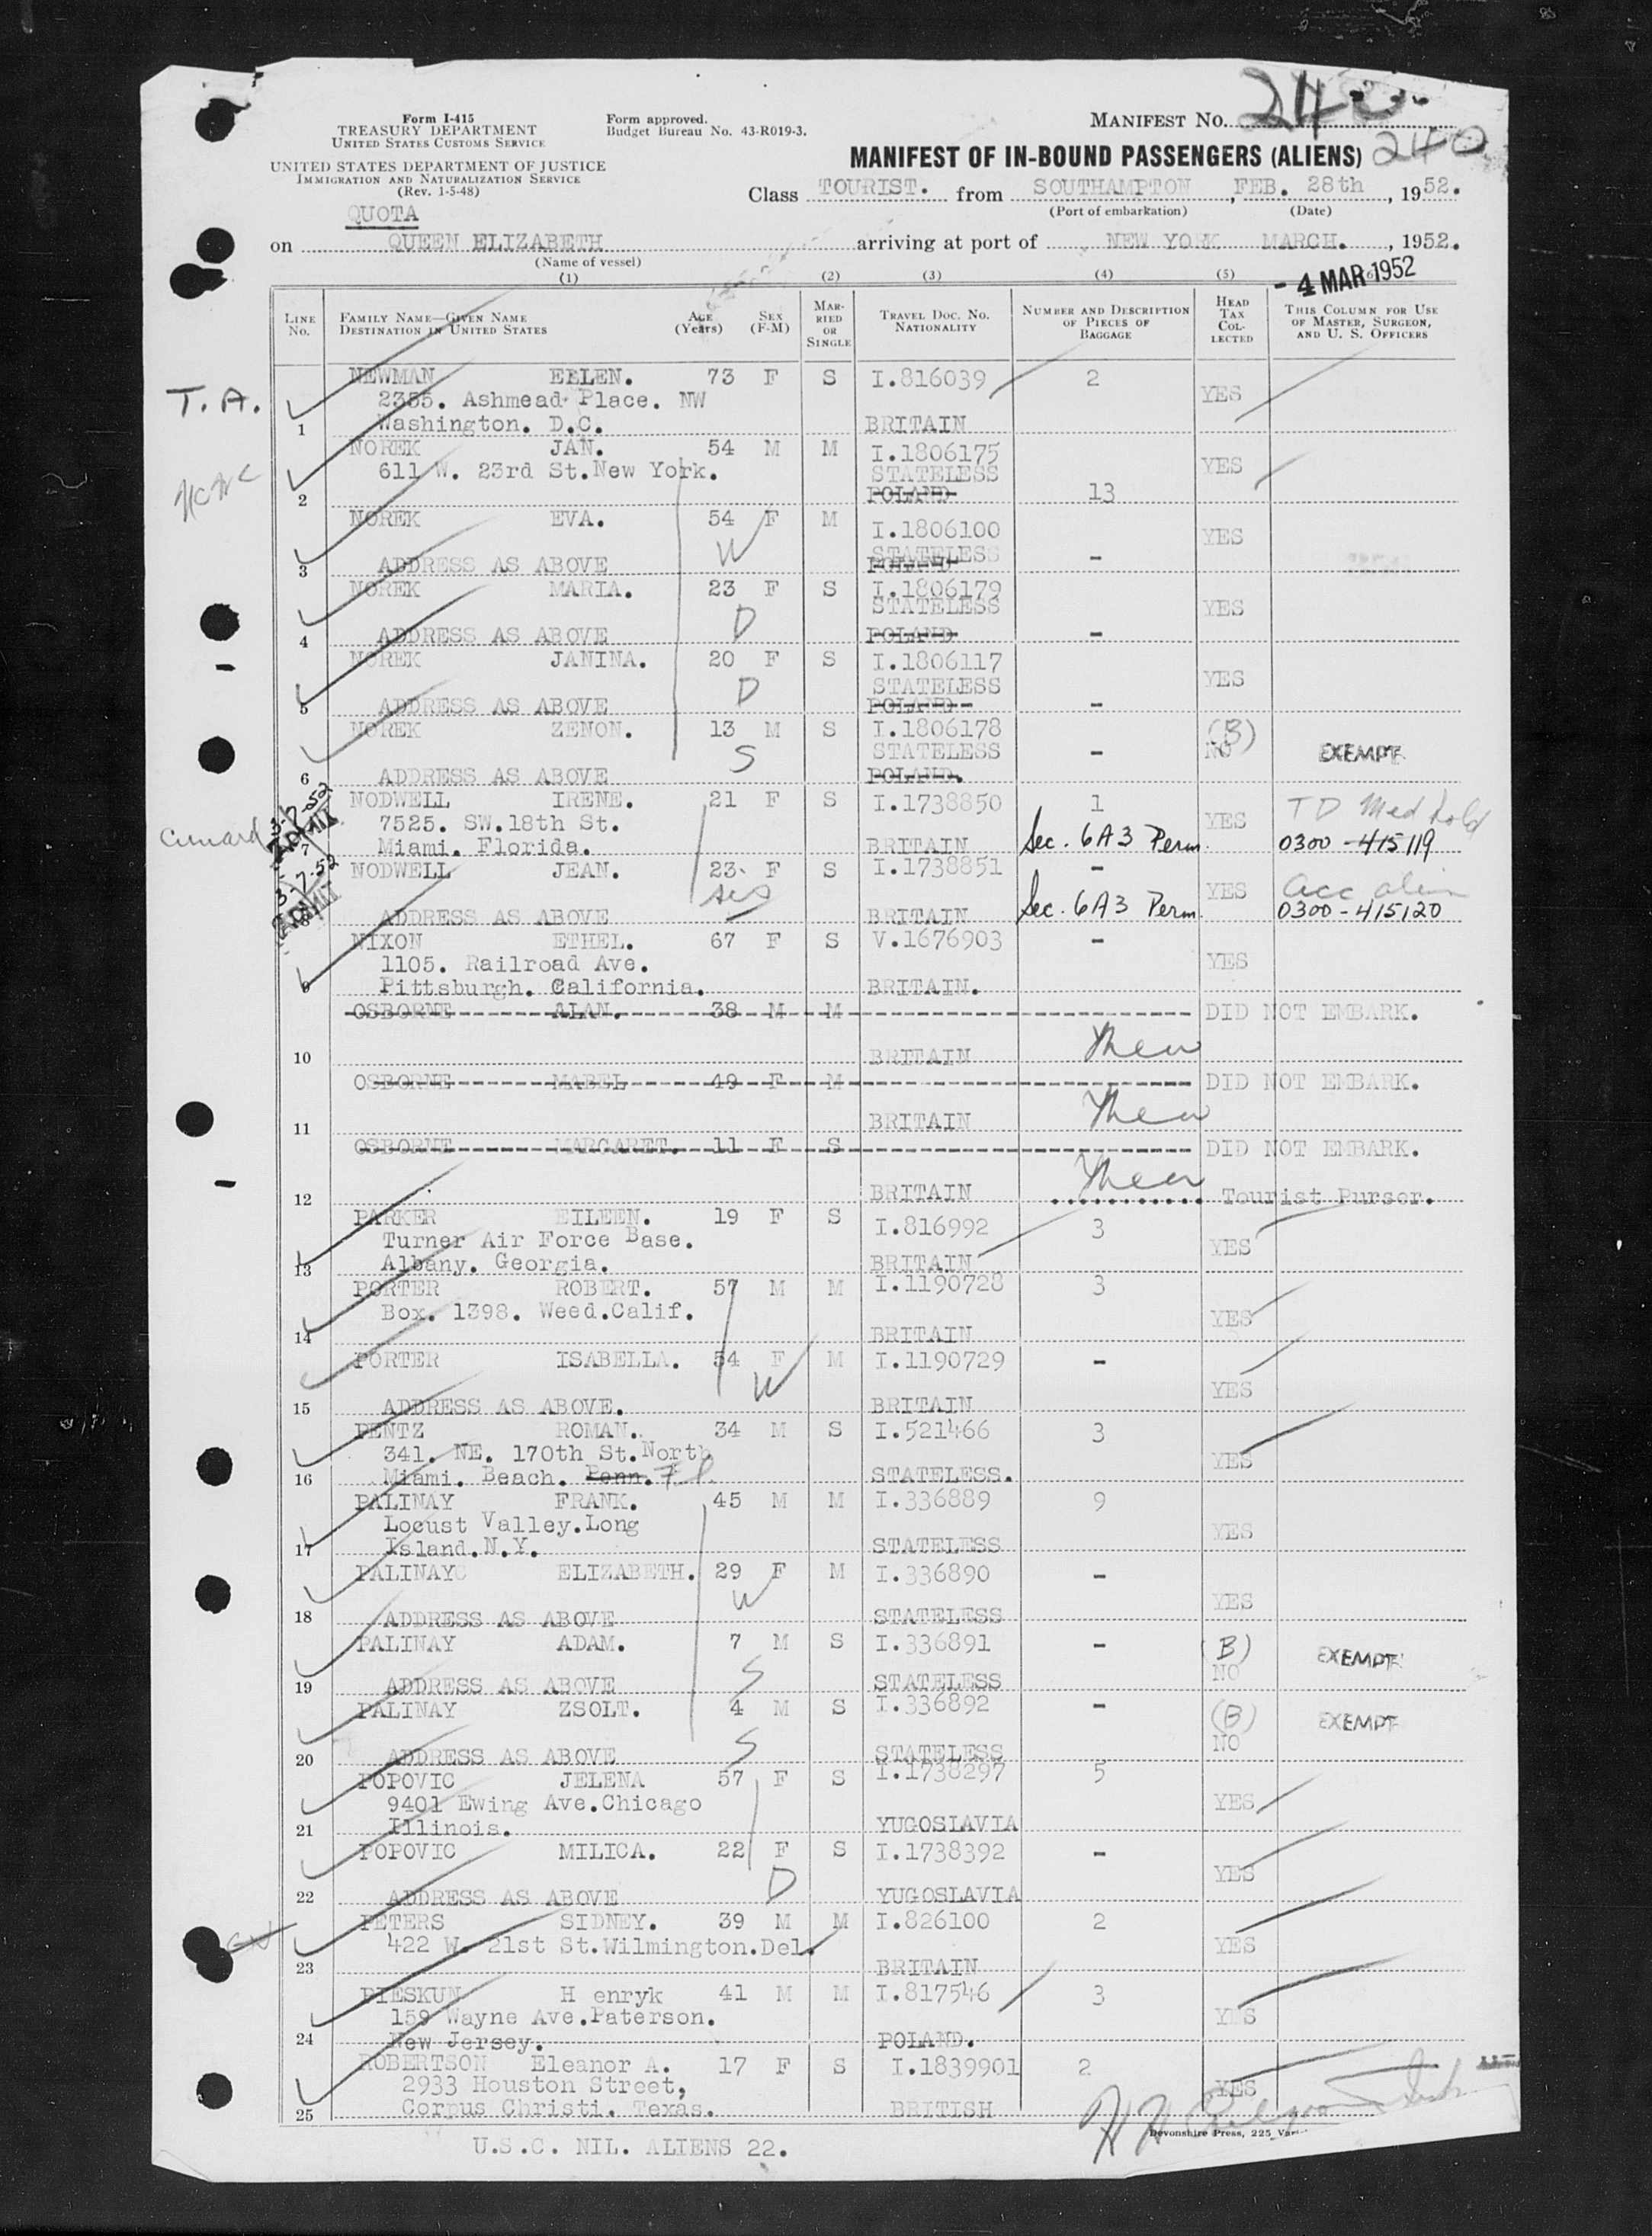 Form I-415
TREASURY DEPARTMENT
UNITED STATES CUSTOMS SERVICE
UNITED STATES DEPARTMENT OF JUSTICE
IMMIGRATION AND NATURALIZATION SERVICE
(Rev. 1-5-48)
Form approved.
Budget Bureau No. 43-R019-3.
MANIFEST NO. 240
MANIFEST OF IN-BOUND PASSENGERS (ALIENS) 240
Class TOURIST. from SOUTHAMPTON, FEB. 28th, 1952.
(Port of embarkation) (Date)
QUOTA
on QUEEN ELIZABETH arriving at port of NEW YORK MARCH., 1952.
(Name of vessel)
- 4 MAR 1952
(1) (2) (3) (4) (5)
LINE No. FAMILY NAME—GIVEN NAME DESTINATION IN UNITED STATES AGE (Years) SEX (F-M) MARRIED OR SINGLE TRAVEL DOC. NO. NATIONALITY NUMBER AND DESCRIPTION OF PIECES OF BAGGAGE HEAD TAX COLLECTED THIS COLUMN FOR USE OF MASTER, SURGEON, AND U. S. OFFICERS
NEWMAN ELLEN. 73 F S I.816039 2
T.A. 2355. Ashmead Place. NW YES
1 Washington. D.C. BRITAIN
NOREK JAN. 54 M M I.1806175
611 W. 23rd St.New York. STATELESS YES
2 POLAND 13
NOREK EVA. 54 F M I.1806100 YES
W STATELESS
3 ADDRESS AS ABOVE POLAND -
NOREK MARIA. 23 F S I.1806179
D STATELESS YES
4 ADDRESS AS ABOVE POLAND -
NOREK JANINA. 20 F S I.1806117
D STATELESS YES
5 ADDRESS AS ABOVE POLAND -
NOREK ZENON. 13 M S I.1806178 (B)
S STATELESS - NO EXEMPT
6 ADDRESS AS ABOVE POLAND.
3-7-52 NODWELL IRENE. 21 F S I.1738850 1 TD Med hold
Cunard ADMIT 7525. SW.18th St. YES
7 Miami. Florida. BRITAIN Sec. 6A3 Perm. 0300-415119
3-7-52 NODWELL JEAN. 23. F S I.1738851 -
ADMIT sis YES acc alien
8 ADDRESS AS ABOVE BRITAIN Sec. 6A3 Perm. 0300-415120
NIXON ETHEL. 67 F S V.1676903 -
1105. Railroad Ave. YES
9 Pittsburgh. California. BRITAIN.
OSBORNE ALAN. 38 M M DID NOT EMBARK.
10 BRITAIN
OSBORNE MABEL 49 F M DID NOT EMBARK.
11 BRITAIN
OSBORNE MARGARET. 11 F S DID NOT EMBARK.
12 BRITAIN ............ Tourist Purser.
PARKER EILEEN. 19 F S I.816992 3
Turner Air Force Base. YES
13 Albany. Georgia. BRITAIN
PORTER ROBERT. 57 M M I.1190728 3
Box. 1398. Weed.Calif. YES
14 BRITAIN
PORTER ISABELLA. 54 F M I.1190729 -
W YES
15 ADDRESS AS ABOVE. BRITAIN
PENTZ ROMAN. 34 M S I.521466 3
341. NE. 170th St.North YES
16 Miami. Beach. Penn. Fl. STATELESS.
PALINAY FRANK. 45 M M I.336889 9
Locust Valley.Long YES
17 Island.N.Y. STATELESS
PALINAY ELIZABETH. 29 F M I.336890 -
W YES
18 ADDRESS AS ABOVE STATELESS
PALINAY ADAM. 7 M S I.336891 - (B) EXEMPT
S NO
19 ADDRESS AS ABOVE STATELESS
PALINAY ZSOLT. 4 M S I.336892 - (B) EXEMPT
S NO
20 ADDRESS AS ABOVE STATELESS
POPOVIC JELENA 57 F S I.1738297 5
9401 Ewing Ave.Chicago YES
21 Illinois. YUGOSLAVIA
POPOVIC MILICA. 22 F S I.1738392 -
D YES
22 ADDRESS AS ABOVE YUGOSLAVIA
PETERS SIDNEY. 39 M M I.826100 2
422 W. 21st St.Wilmington.Del. YES
23 BRITAIN
PIESKUN H enryk 41 M M I.817546 3
159 Wayne Ave.Paterson. YES
24 New Jersey. POLAND.
ROBERTSON Eleanor A. 17 F S I.1839901 2
2933 Houston Street, YES
25 Corpus Christi. Texas. BRITISH
Devonshire Press, 225
U.S.C. NIL. ALIENS 22.